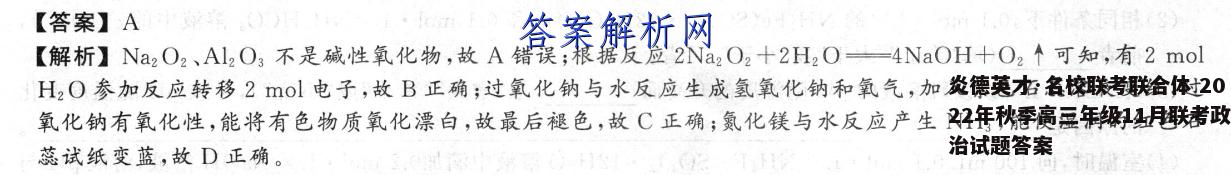 【答案】A
答案解析网
【解析】Na₂O₂、Al₂O₃ 不是碱性氧化物,故 A 错误;根据反应 2Na₂O₂+2H₂O══4NaOH+O₂↑可知,有 2 mol
H₂O 参加反应转移 2 mol 电子,故 B 正确;过氧化钠与水反应生成氢氧化钠和氧气,加
炎德英才·名校联考联合体 20
氧化钠有氧化性,能将有色物质氧化漂白,故最后褪色,故 C 正确;氮化镁与水反应产生 NH₃
22年秋季高三年级11月联考政
蕊试纸变蓝,故 D 正确。
治试题答案